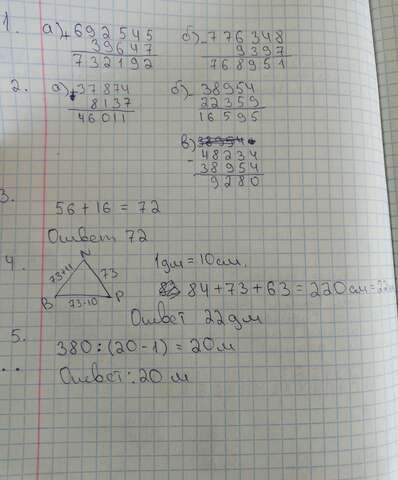 1. а) + 692545 б) - 776348
39647 9397
732192 768951
2. а) + 37874 б) - 38954
8137 22359
46011 16595
в)
- 48234
38954
9280
3.
56 + 16 = 72
Ответ 72
4. N 1дм = 10см.
73+11 73
84 + 73 + 63 = 220см = 22дм
B 73-10 P
Ответ 22дм
5.
380 : (20 - 1) = 20м
Ответ: 20 м